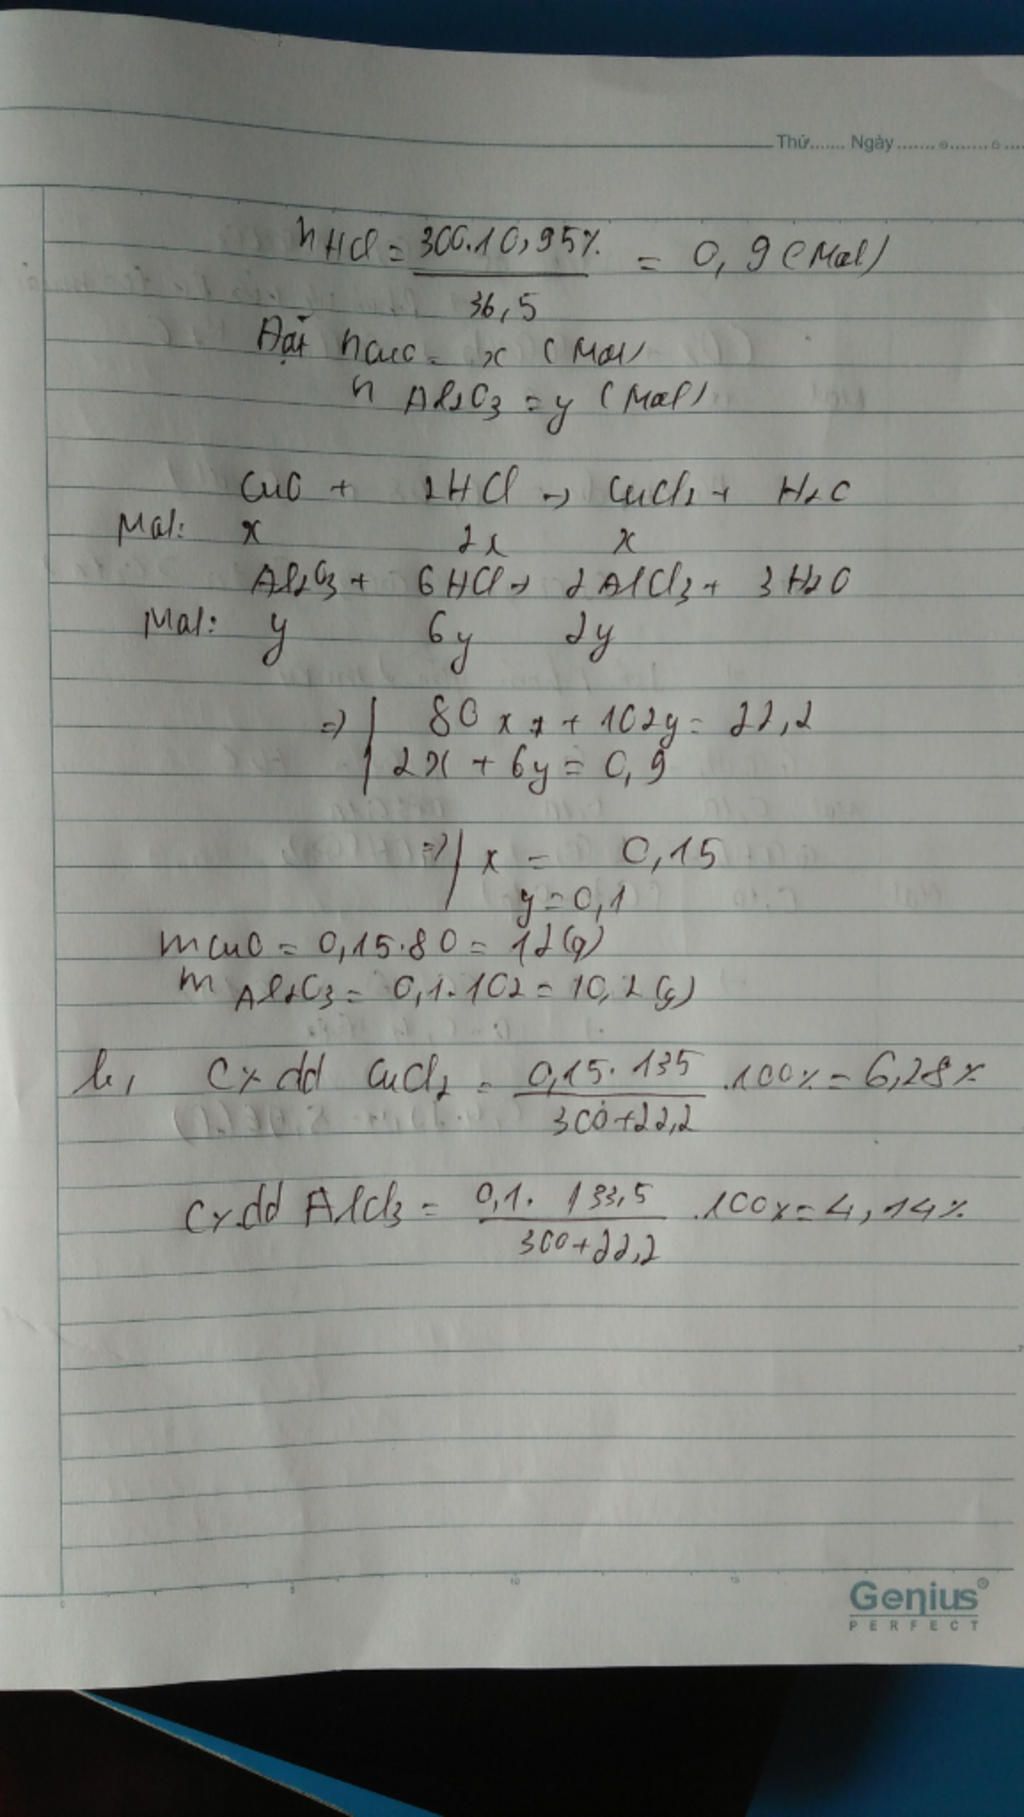 Thứ....... Ngày.......
nHCl = 300.10,95% / 36,5 = 0,9 (Mol)
Đặt nCuO = x (Mol)
n Al2O3 = y (Mol)
CuO + 2HCl → CuCl2 + H2O
Mol: x 2x x
Al2O3 + 6HCl → 2AlCl3 + 3H2O
Mol: y 6y 2y
=> 80x + 102y = 22,2
2x + 6y = 0,9
=> x = 0,15
y = 0,1
mCuO = 0,15.80 = 12(g)
m Al2O3 = 0,1.102 = 10,2(g)
b, C% dd CuCl2 = 0,15.135 / 300+22,2 .100% = 6,28%
C% dd AlCl3 = 0,1.133,5 / 300+22,2 .100% = 4,14%
Genius®
PERFECT